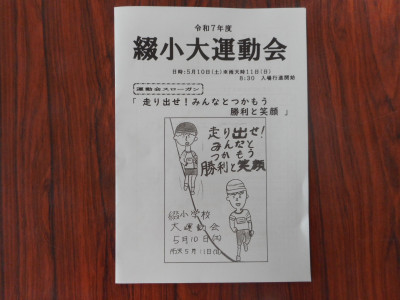 令和7年度
綴小大運動会
日時:5月10日(土)※雨天時11日(日)
8:30 入場行進開始
運動会スローガン
「 走り出せ!みんなとつかもう
勝利と笑顔 」
走り出せ!
みんなと
つかもう
勝利と笑顔
綴小学校
大運動会
5月10日(土)
雨天5月11日(日)